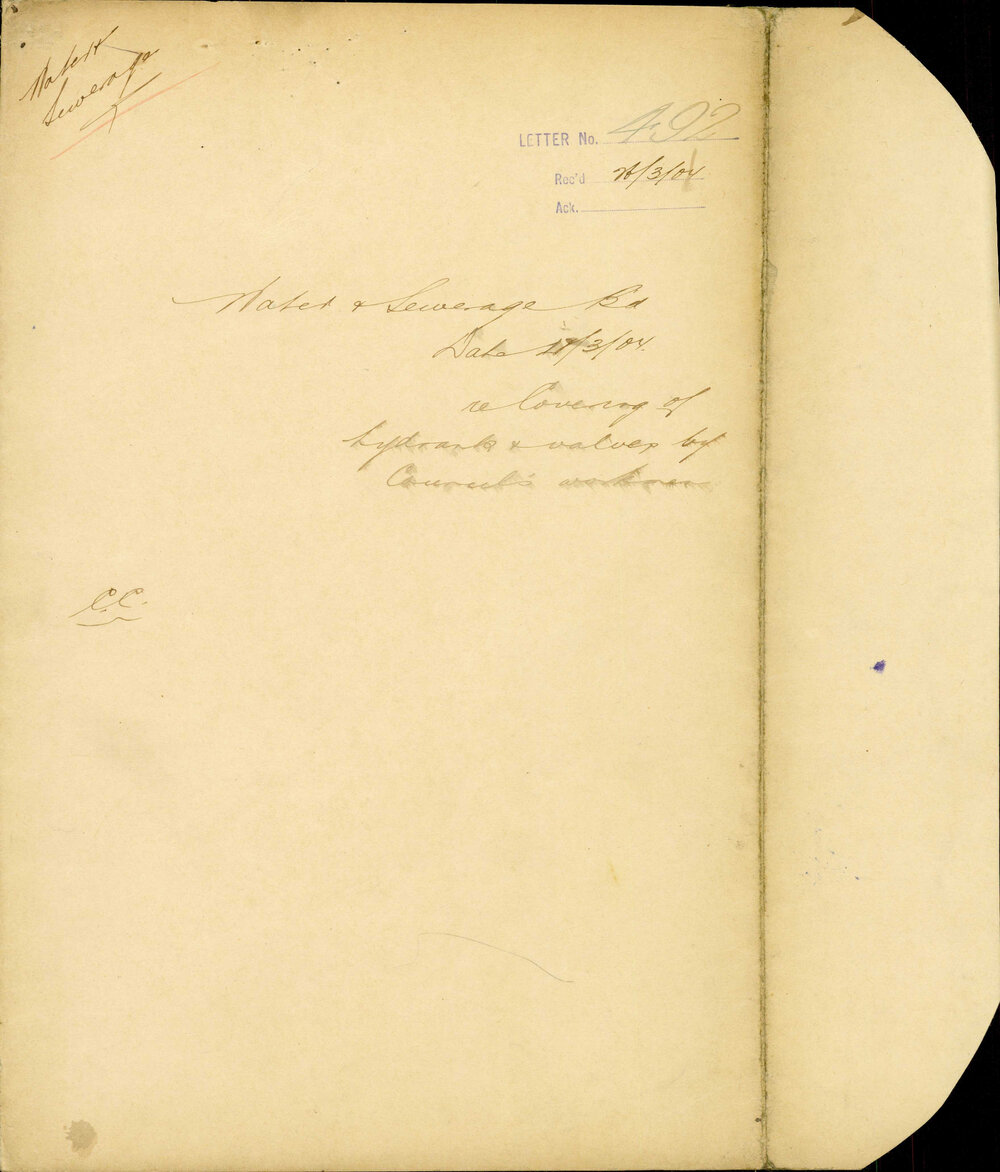 Water &
Sewerage
LETTER No. 492
Rec'd /3/04
Ack.
Water & Sewerage Bd
Date 17/3/04.
re Covering of
hydrants & valves by
Council's workmen
C.C.